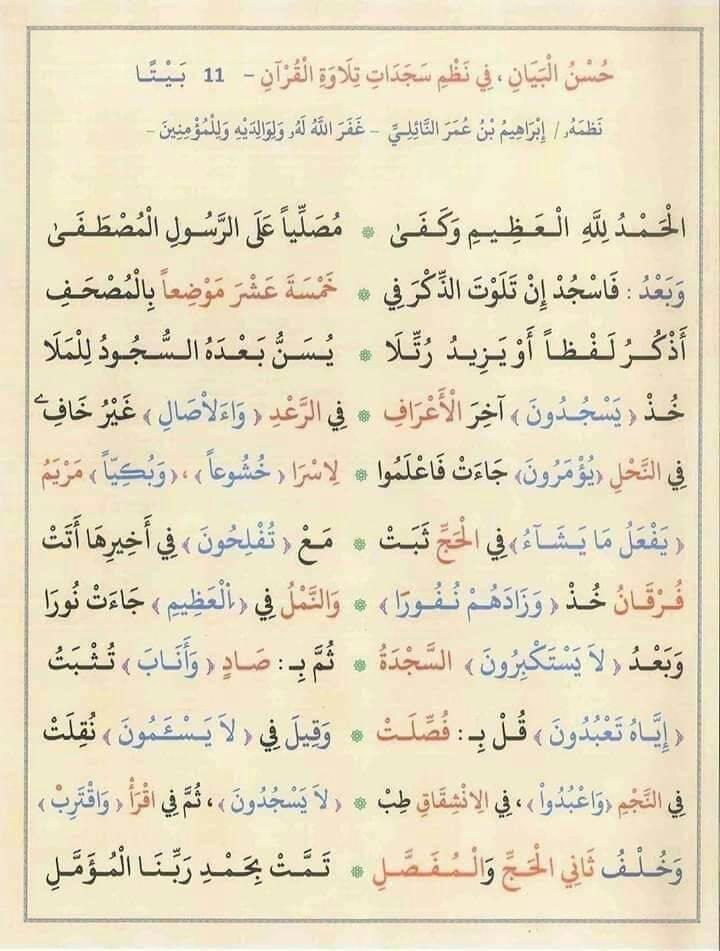 حُسْنُ الْبَيَانِ ، فِي نَظْمِ سَجَدَاتِ تِلَاوَةِ الْقُرْآنِ - 11 بَيْتًا
نَظَمَهُ / إِبْرَاهِيمُ بْنُ عُمَرَ النَّائِلِيِّ - غَفَرَ اللَّهُ لَهُ وَلِوَالِدَيْهِ وَلِلْمُؤْمِنِينَ -
الْحَمْدُ لِلَّهِ الْعَظِيمِ وَكَفَىٰ ۞ مُصَلِّياً عَلَى الرَّسُولِ الْمُصْطَفَىٰ
وَبَعْدُ : فَاسْجُدْ إِنْ تَلَوْتَ الذِّكْرَ فِي ۞ خَمْسَةَ عَشْرَ مَوْضِعاً بِالْمُصْحَفِ
أَذْكُرُ لَفْظاً أَوْ يَزِيدُ رُتِّلَا ۞ يُسَنُّ بَعْدَهُ السُّجُودُ لِلْمَلَا
خُذْ ﴿ يَسْجُدُونَ ﴾ آخِرَ الْأَعْرَافِ ۞ فِي الرَّعْدِ ﴿ وَاءَلَاْصَالِ ﴾ غَيْرُ خَافِے
فِي النَّحْلِ ﴿يُؤْمَرُونَ﴾ جَاءَتْ فَاعْلَمُوا ۞ لِاسْرَا ﴿ خُشُوعاً ﴾ ، ﴿وَبُكِيّاً ﴾ مَرْيَمُ
﴿ يَفْعَلُ مَا يَشَآءُ﴾ فِي الْحَجِّ ثَبَتْ ۞ مَعْ ﴿ تُفْلِحُونَ ﴾ فِي أَخِيرِهَا أَتَتْ
فُرْقَانُ خُذْ ﴿ وَزَادَهُمْ نُفُورًا ﴾ ۞ وَالنَّمْلُ فِي ﴿ اِلْعَظِيمِ ﴾ جَاءَتْ نُورَا
وَبَعْدُ ﴿ لَا يَسْتَكْبِرُونَ ﴾ السَّجْدَةُ ۞ ثُمَّ بِـ : صَادٍ ﴿ وَأَنَابَ ﴾ تُثْبَتُ
﴿ إِيَّاهُ تَعْبُدُونَ ﴾ قُلْ بِـ : فُصِّلَتْ ۞ وَقِيلَ فِي ﴿ لَا يَسْـَٔمُونَ ﴾ نُقِلَتْ
فِي النَّجْمِ ﴿وَاعْبُدُواْ﴾ ، فِي الِانْشِقَاقِ طِبْ ۞ ﴿ لَا يَسْجُدُونَ ﴾ ، ثُمَّ فِي اقْرَأْ ﴿ وَاقْتَرِبْ ﴾
وَخُلْفُ ثَانِي الْحَجِّ وَالْمُفَصَّلِ ۞ تَمَّتْ بِحَمْدِ رَبِّنَا الْمُؤَمَّلِ